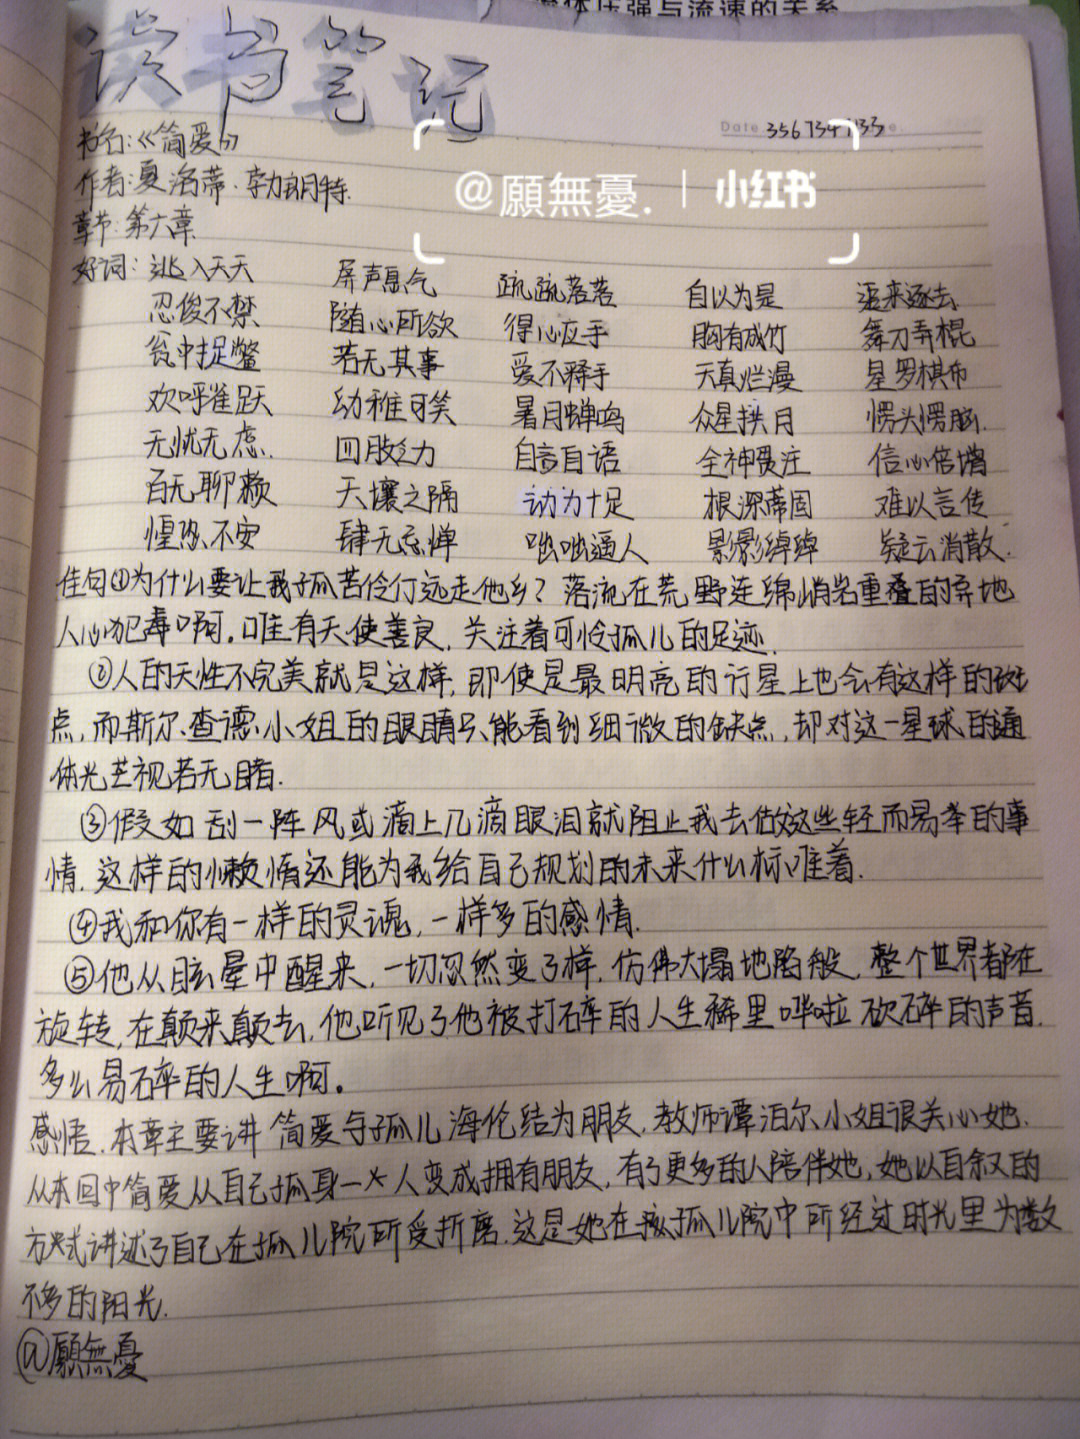 流体压强与流速的关系
读书笔记
Date 356734933
书名:《简爱》
@願無憂. | 小红书
作者:夏洛蒂·勃朗特.
章节:第六章
好词: 逃入天天 屏声息气 疏疏落落 自以为是 逛来逐去
忍俊不禁 随心所欲 得心应手 胸有成竹 舞刀弄棍
瓮中捉鳖 若无其事 爱不释手 天真烂漫 星罗棋布
欢呼雀跃 幼稚可笑 暑月蝉鸣 众星拱月 愣头愣脑.
无忧无虑. 四肢乏力 自言自语 全神贯注 信心倍增
百无聊赖 天壤之隔 动力十足 根深蒂固 难以言传
惶恐不安 肆无忌惮 咄咄逼人 影影绰绰 疑云消散.
佳句①为什么要让我孤苦伶仃远走他乡?落流在荒野连绵峭岩重叠的异地
人心犯毒啊。唯有天使善良,关注着可怜孤儿的足迹.
②人的天性不完美就是这样,即使是最明亮的行星上也会有这样的斑
点,而斯尔查德小姐的眼睛只能看到细微的缺点,却对这一星球的通
体光芒视若无睹.
③假如刮一阵风或滴上几滴眼泪就阻止我去做这些轻而易举的事
情,这样的懒惰还能为我给自己规划的未来什么标准着.
④我和你有一样的灵魂,一样多的感情.
⑤他从眩晕中醒来,一切忽然变了样,仿佛大塌地陷般,整个世界都在
旋转,在颠来颠去,他听见了他被打碎的人生稀里哗啦砍碎的声音.
多么易碎的人生啊。
感悟.本章主要讲简爱与孤儿海伦结为朋友,教师谭泊尔小姐很关心她.
从本回中简爱从自己孤身一人变成拥有朋友,有了更多的人陪伴她,她以自叙的
方式讲述了自己在孤儿院所受折磨.这是她在孤儿院中所经过时光里为数
不多的阳光.
@願無憂